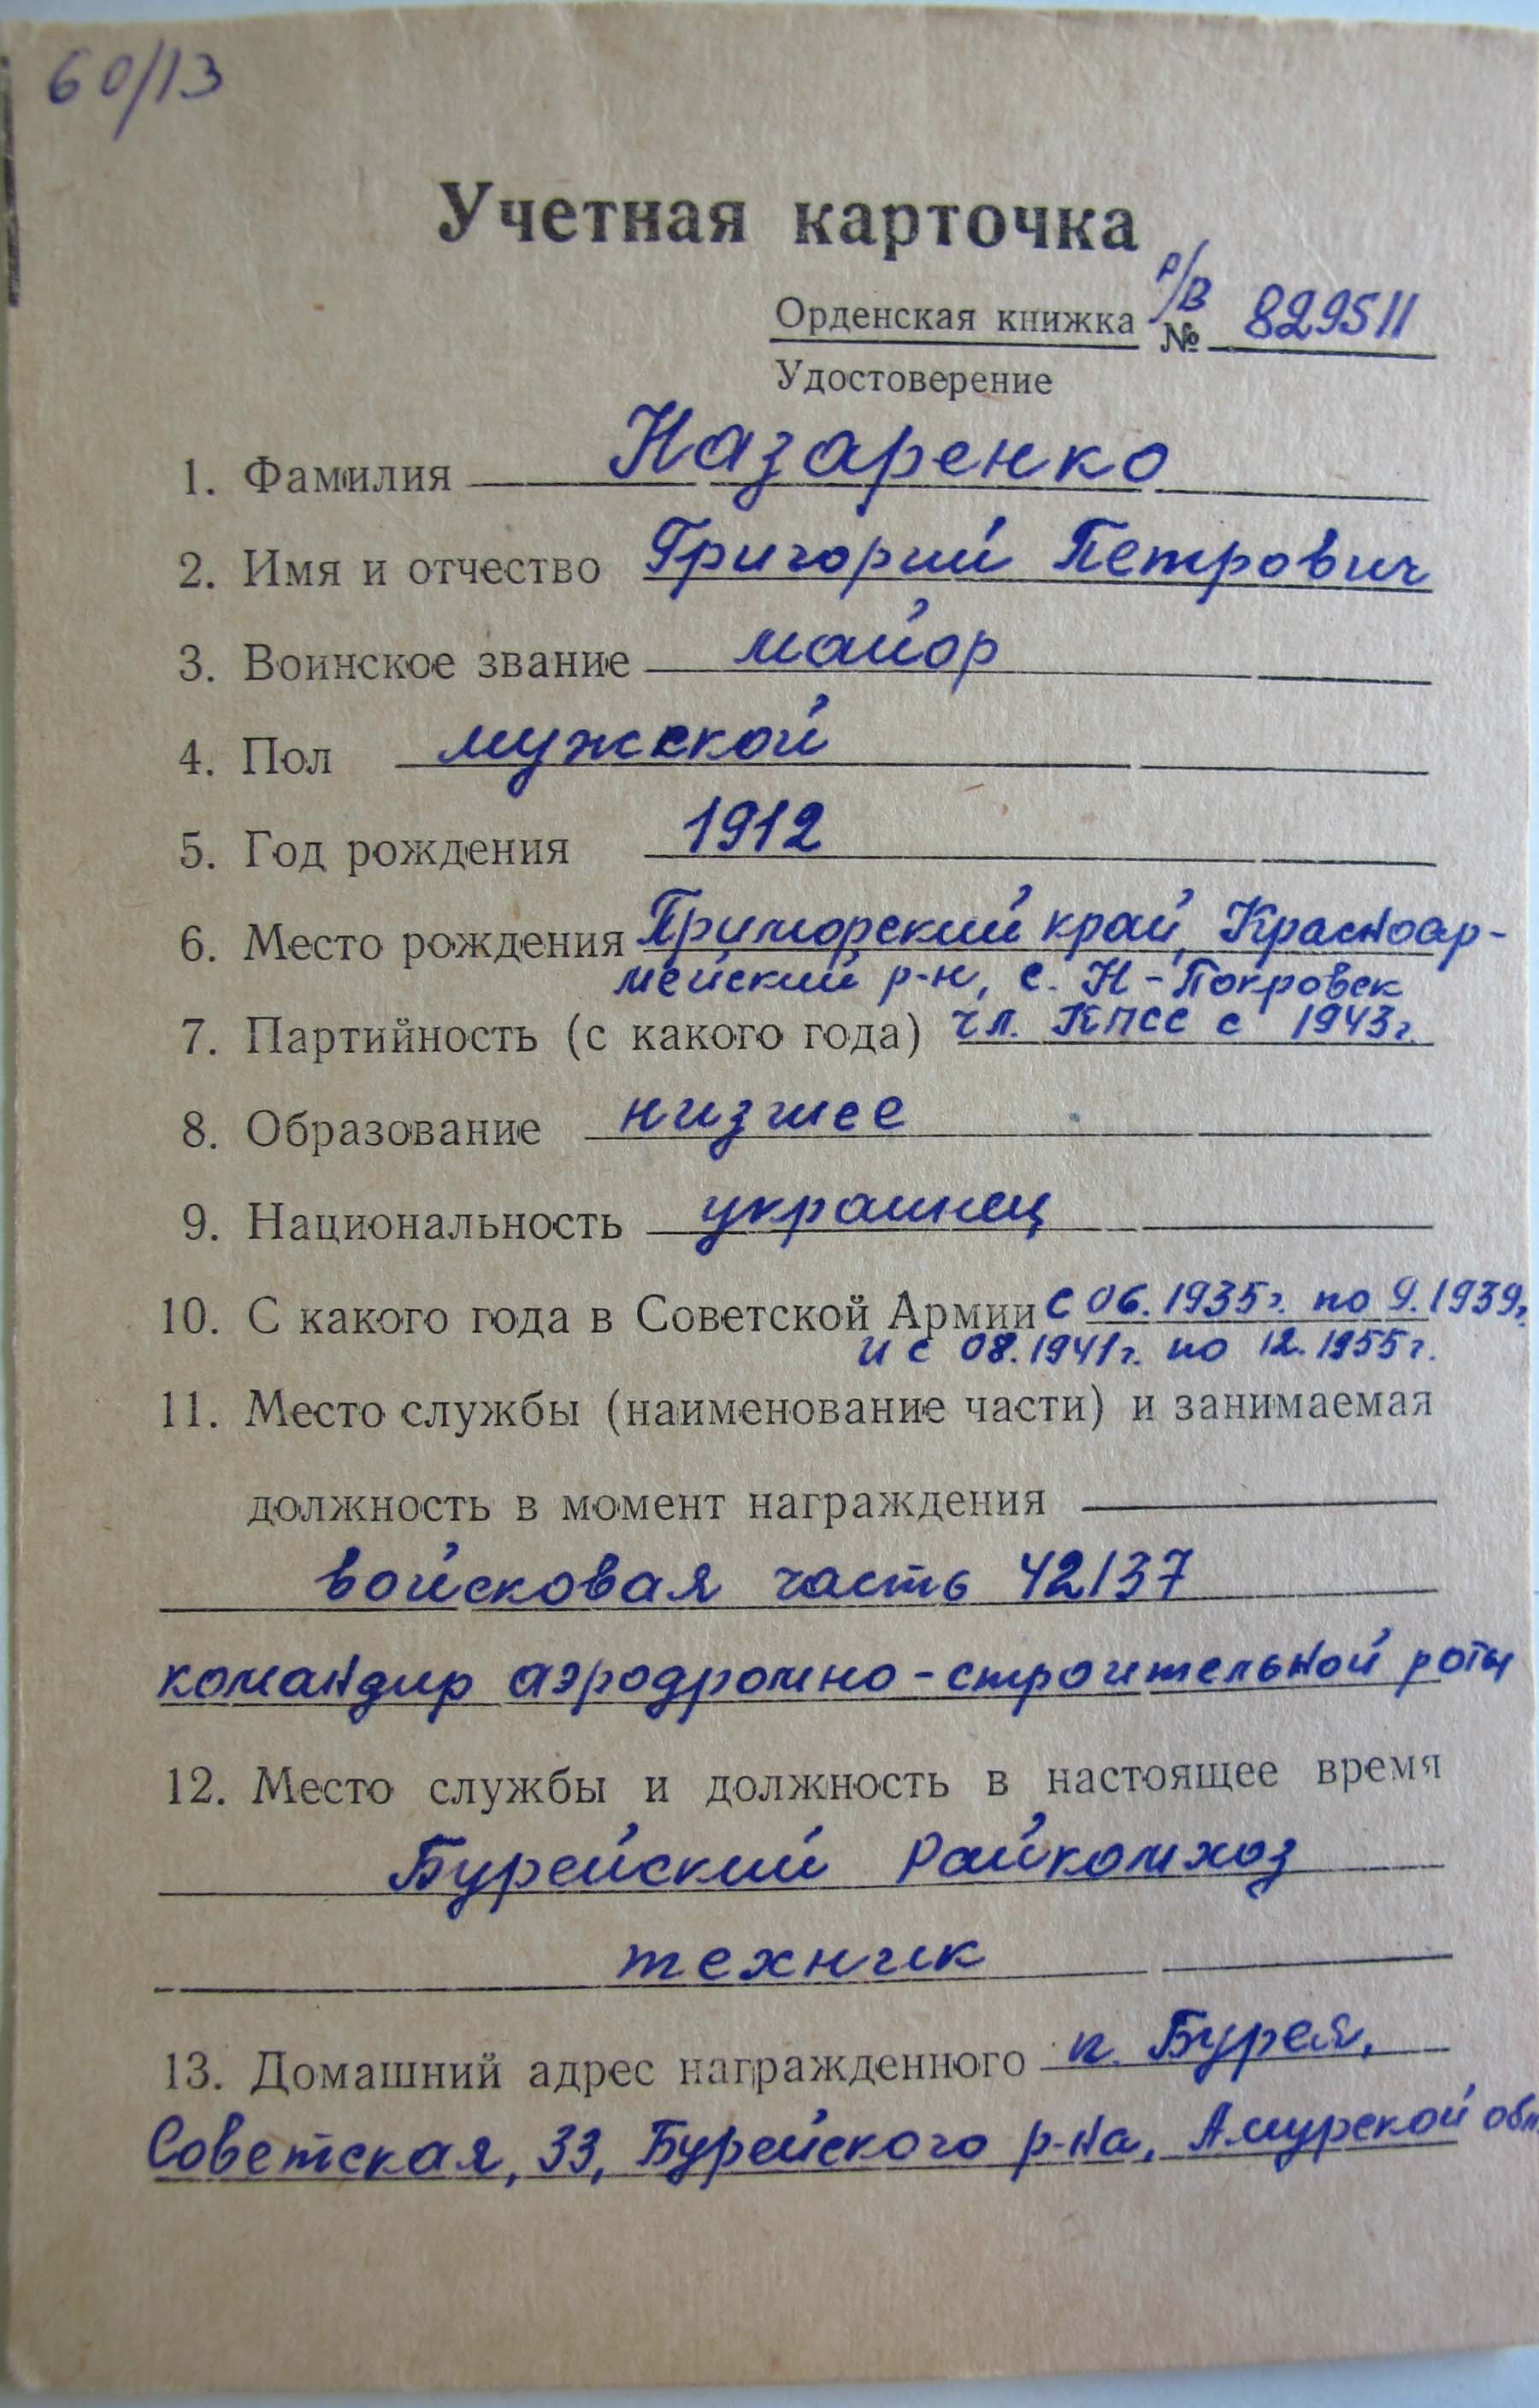 60/13
Учетная карточка
Р/В
Орденская книжка № 829511
Удостоверение
1. Фамилия Назаренко
2. Имя и отчество Григорий Петрович
3. Воинское звание майор
4. Пол мужской
5. Год рождения 1912
6. Место рождения Приморский край, Красноар-
мейский р-н, с. Н-Покровск
7. Партийность (с какого года) чл. КПСС с 1943г.
8. Образование низшее
9. Национальность украинец
10. С какого года в Советской Армии с 06.1935г. по 9.1939г.
и с 08.1941г. по 12.1955г.
11. Место службы (наименование части) и занимаемая
должность в момент награждения
войсковая часть 42137
командир аэродромно-строительной роты
12. Место службы и должность в настоящее время
Бурейский Райкомхоз
техник
13. Домашний адрес награжденного п. Бурея,
Советская, 33, Бурейского р-на, Амурской обл.